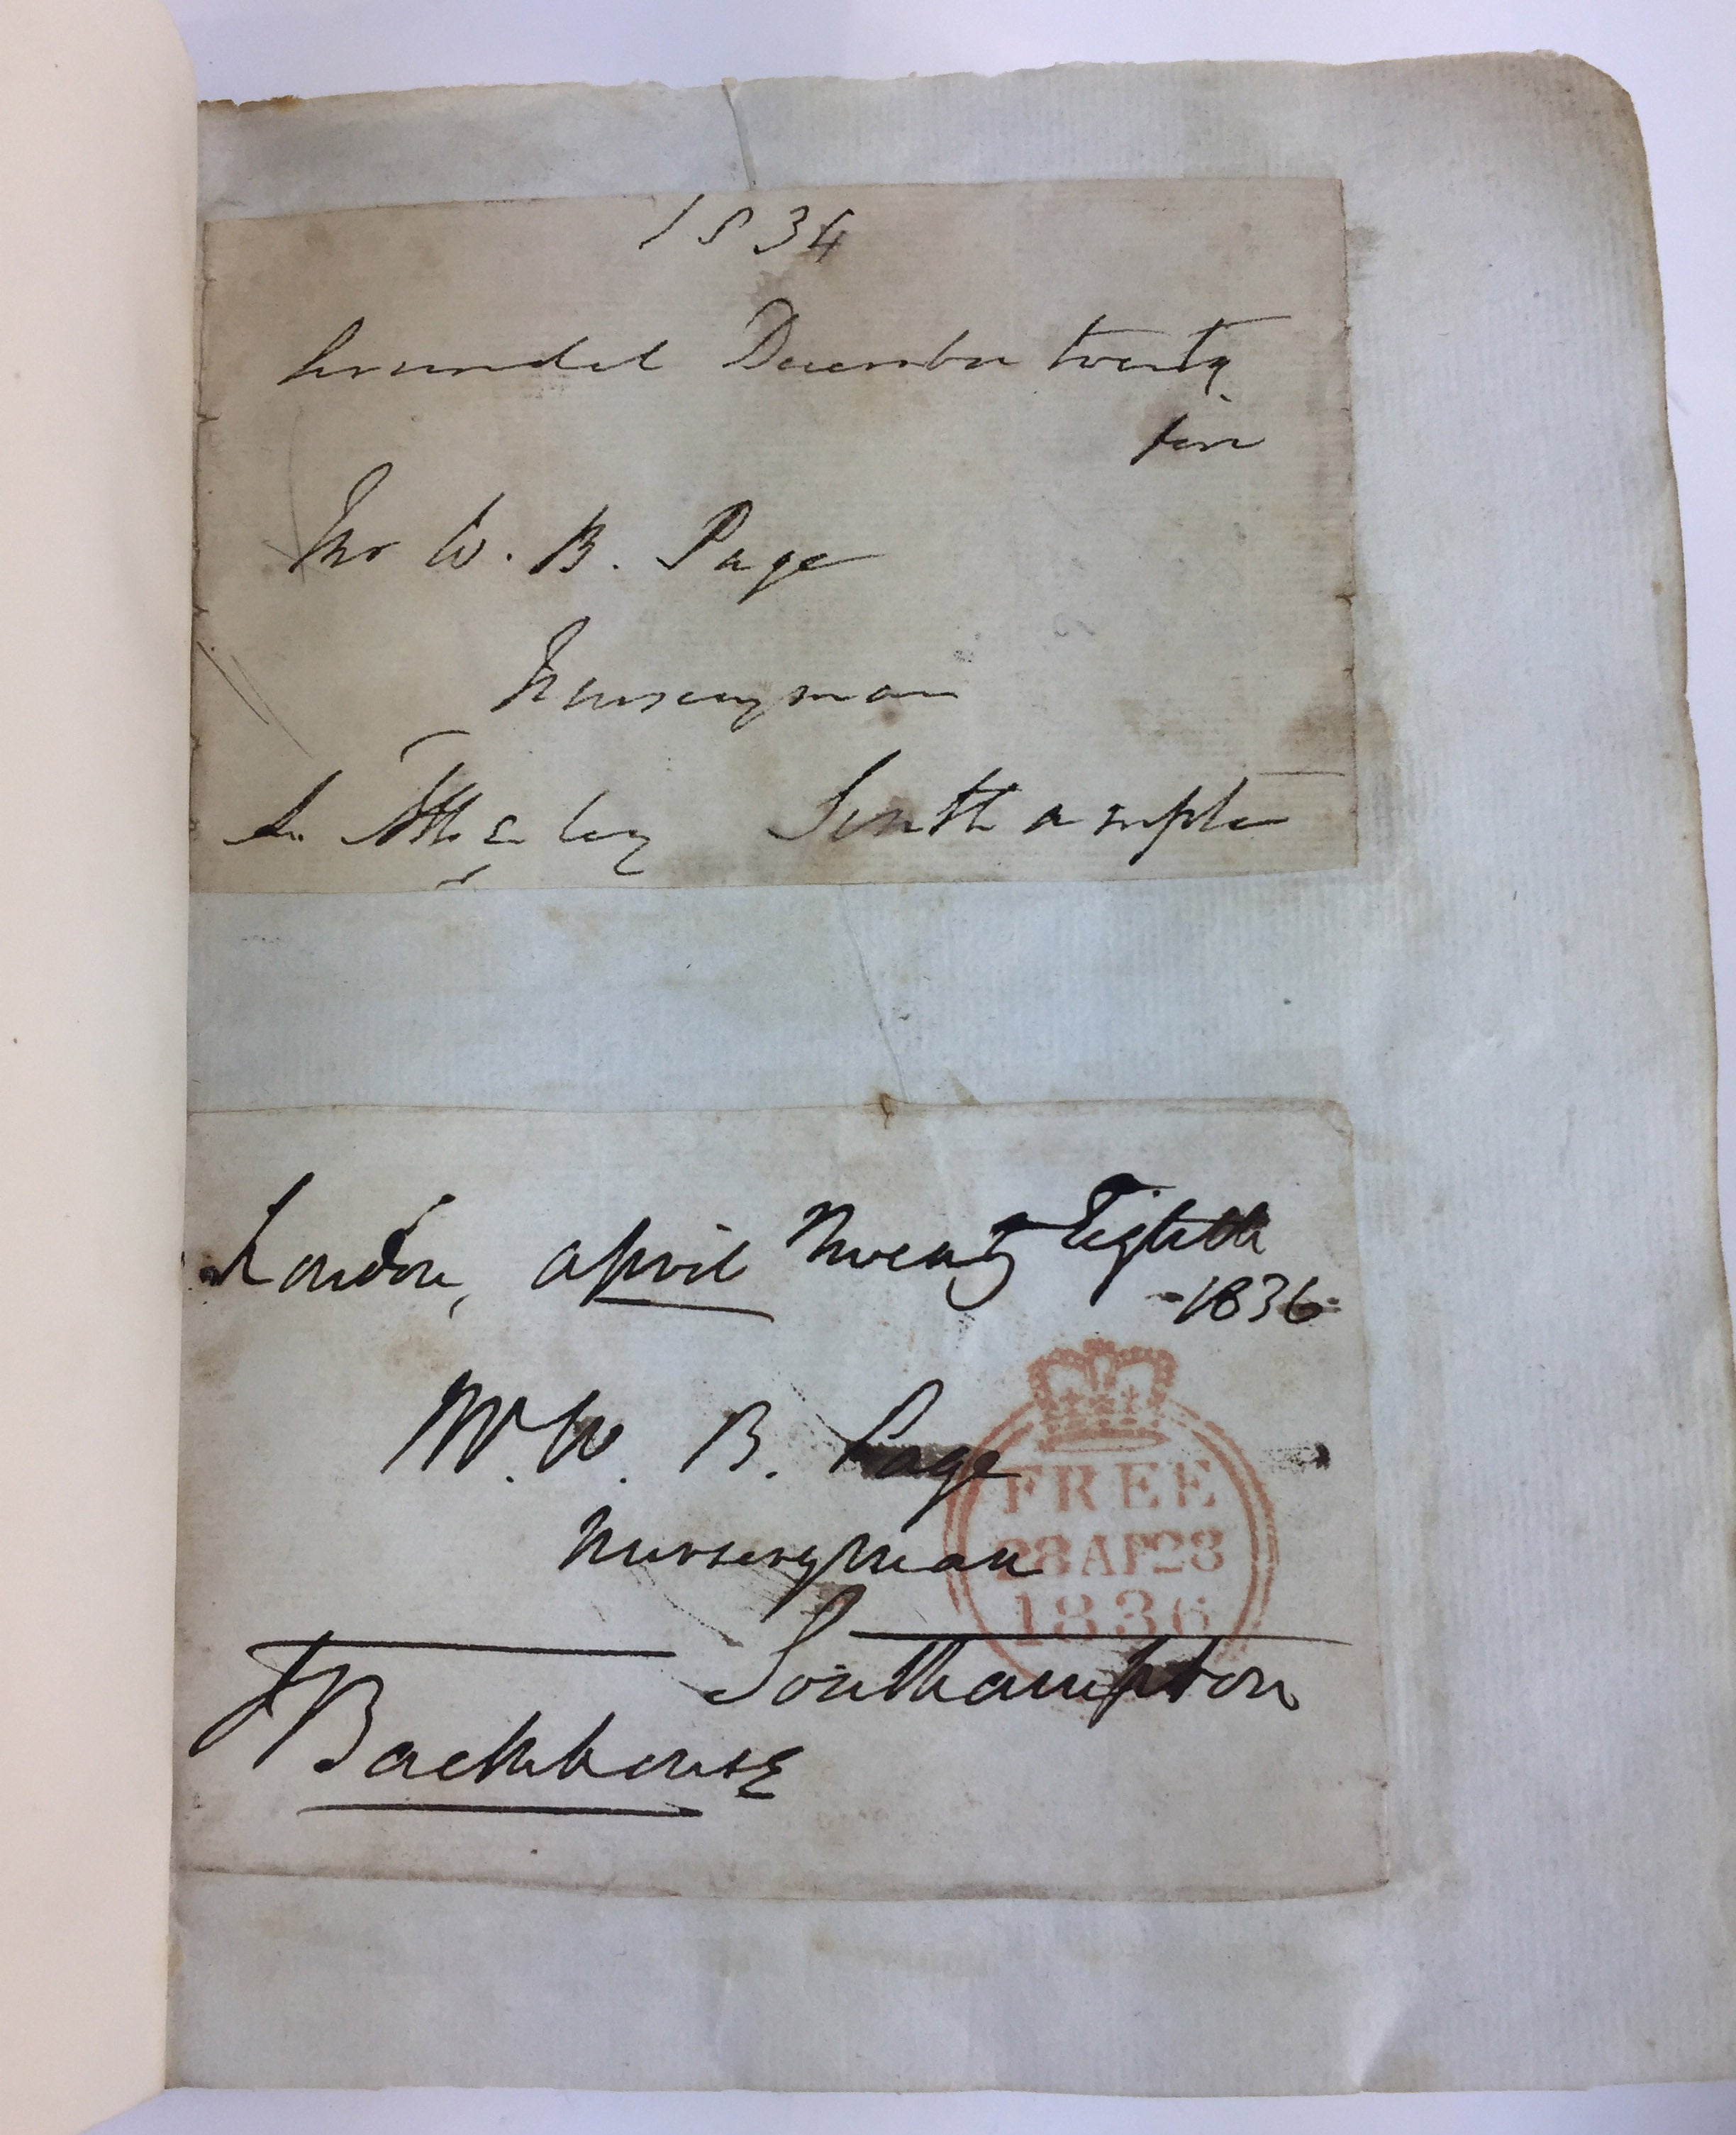 1834
Arundel December twenty
five
Mr W. B. Page
Nurseryman
Southampto
London, April Twenty Eighth
-1836-
Mr. W. B. Page
Nurseryman
Southampton
J Backhouse
FREE
28 AP 28
1836